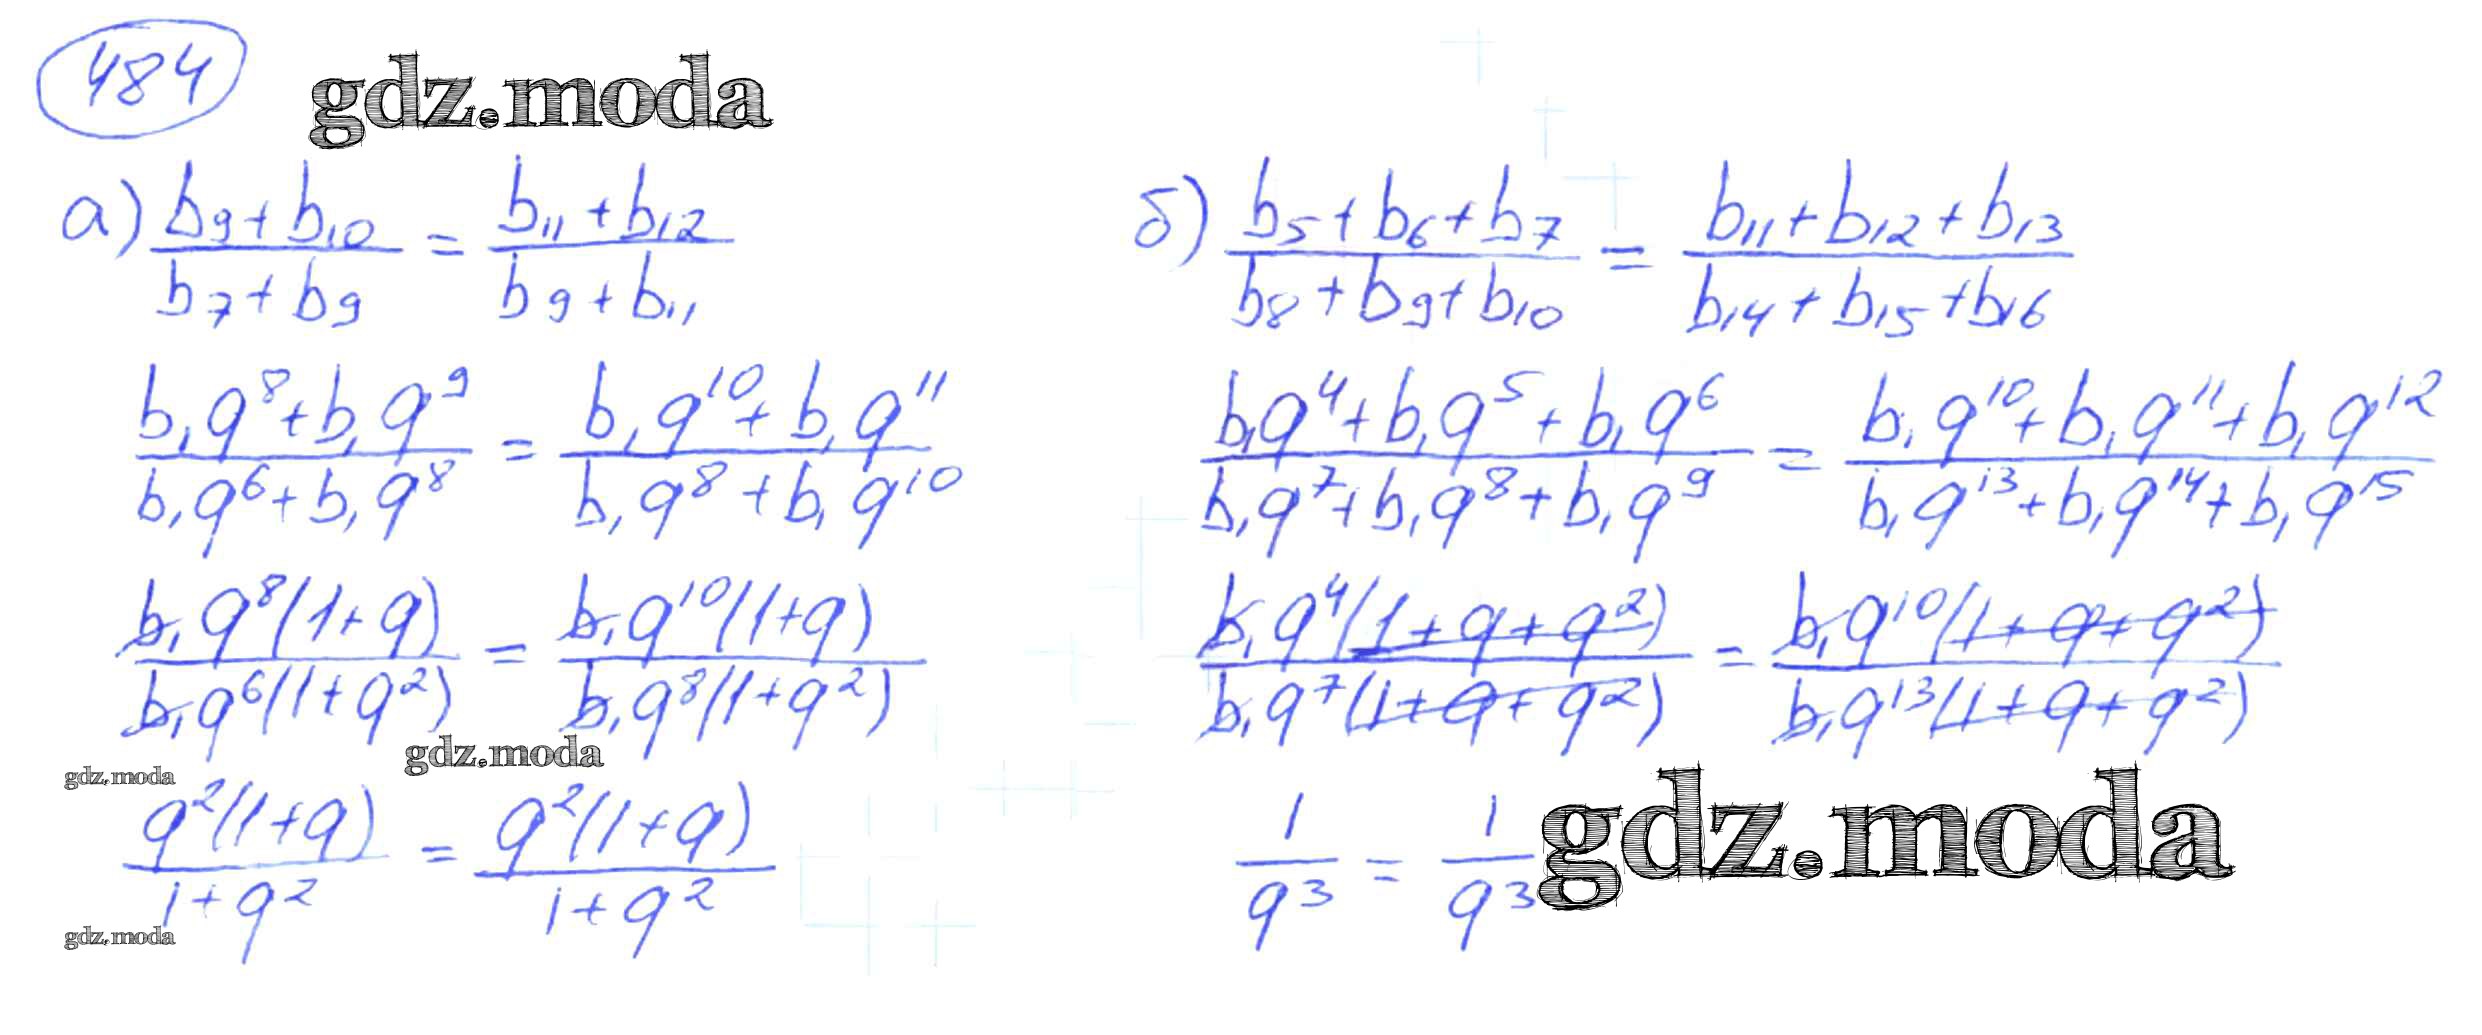 484
gdz.moda
а) (b₉+b₁₀)/(b₇+b₉) = (b₁₁+b₁₂)/(b₉+b₁₁)
(b₁q⁸+b₁q⁹)/(b₁q⁶+b₁q⁸) = (b₁q¹⁰+b₁q¹¹)/(b₁q⁸+b₁q¹⁰)
(b₁q⁸(1+q))/(b₁q⁶(1+q²)) = (b₁q¹⁰(1+q))/(b₁q⁸(1+q²))
gdz.moda
gdz.moda
(q²(1+q))/(1+q²) = (q²(1+q))/(1+q²)
gdz.moda
б) (b₅+b₆+b₇)/(b₈+b₉+b₁₀) = (b₁₁+b₁₂+b₁₃)/(b₁₄+b₁₅+b₁₆)
(b₁q⁴+b₁q⁵+b₁q⁶)/(b₁q⁷+b₁q⁸+b₁q⁹) = (b₁q¹⁰+b₁q¹¹+b₁q¹²)/(b₁q¹³+b₁q¹⁴+b₁q¹⁵)
(b₁q⁴(1+q+q²))/(b₁q⁷(1+q+q²)) = (b₁q¹⁰(1+q+q²))/(b₁q¹³(1+q+q²))
1/q³ = 1/q³
gdz.moda